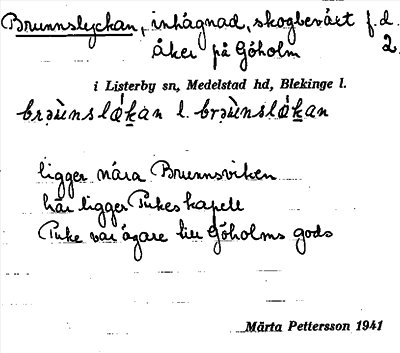 Brunnslyckan, inhägnad, skogbevåxt f.d.
åker på Göholm 2.
i Listerby sn, Medelstad hd, Blekinge l.
l.
ligger nära Brunnsviken
här ligger Pukes kapell
Puke var ägare till Göholms gods
Märta Pettersson 1941